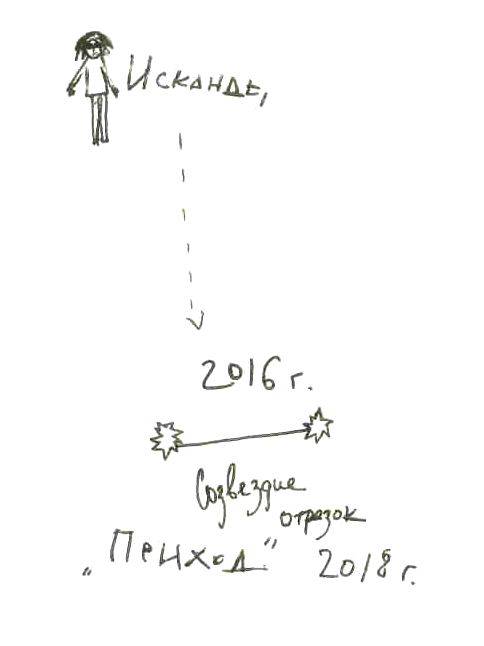 Исканде,
2016 г.
Созвездие
отрезок
„Пейход" 2018 г.